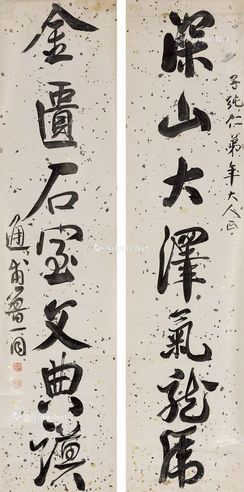 深山大澤氣龍虎
子純仁弟年大人正
金匱石室文典謨
通甫魯一同